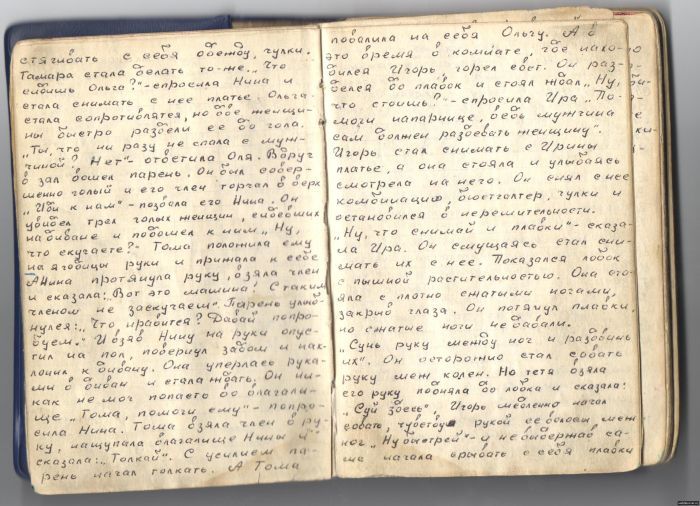 стягивать с себя одежду, чулки.
Тамара стала делать то-же. „Что
сидишь Ольга?" - спросила Нина и
стала снимать с нее платье. Ольга
стала сопротивлятся, но две женщи-
ны быстро раздели ее до гола.
„Ты, что ни разу не спала с муж-
чиной? Нет" - ответила Оля. Вдруг
в зал вошел парень. Он был совер-
шенно голый и его член торчал в верх
„Иди к нам" - позвала его Нина. Он
увидел трех голых женщин, сидевших
на диване и подошел к ним „Ну,
что скучаете?" Тома положила ему
на ягодицы руки и прижала к себе
А Нина протянула руку, взяла член
и сказала: „Вот это машина! С таким
членом не заскучаем". Парень улыб-
нулся: „Что нравится? Давай попро-
буем." И взяв Нину на руки опус-
тил на пол, повернул задом и нак-
лонил к дивану. Она уперлась рука-
ми в диван и стала ждать. Он ни-
как не мог попасть во влагали-
ще „Тома, помоги ему" - попро-
сила Нина. Тома взяла член в ру-
ку, нащупала влагалище Нины и
сказала: „Толкай". С усилием па-
рень начал толкать. А Тома
повалила на себя Ольгу. А в
это время в комнате, где нахо-
дился Игорь, горел свет. Он раз-
делся до плавок и стоял ждал „Ну,
что стоишь?" - спросила Ира „По-
моги напарнице, ведь мужчина
сам должен раздевать женщину".
Игорь стал снимать с Ирины
платье, а она стояла и улыбаясь
смотрела на него. Он снял с нее
комбинацию, бюстголтер, чулки и
остановился в нерешительности.
„Ну, что снимай и плавки" - сказа-
ла Ира. Он смущаясь стал сни-
мать их с нее. Показался лобок
с пышной растительностью. Она сто-
яла с плотно сжатыми ногами,
закрыв глаза. Он потянул плавки,
но сжатые ноги не давали.
„Сунь руку между ног и раздвинь
их". Он осторожно стал совать
руку меж колен. Но тетя взяла
его руку подняла до лобка и сказала:
„Суй здесь", Игорь медленно начал
совать, чувствуя рукой ее волосы меж
ног „Ну быстрей" - и не выдержав са-
ма начала срывать с себя плавки